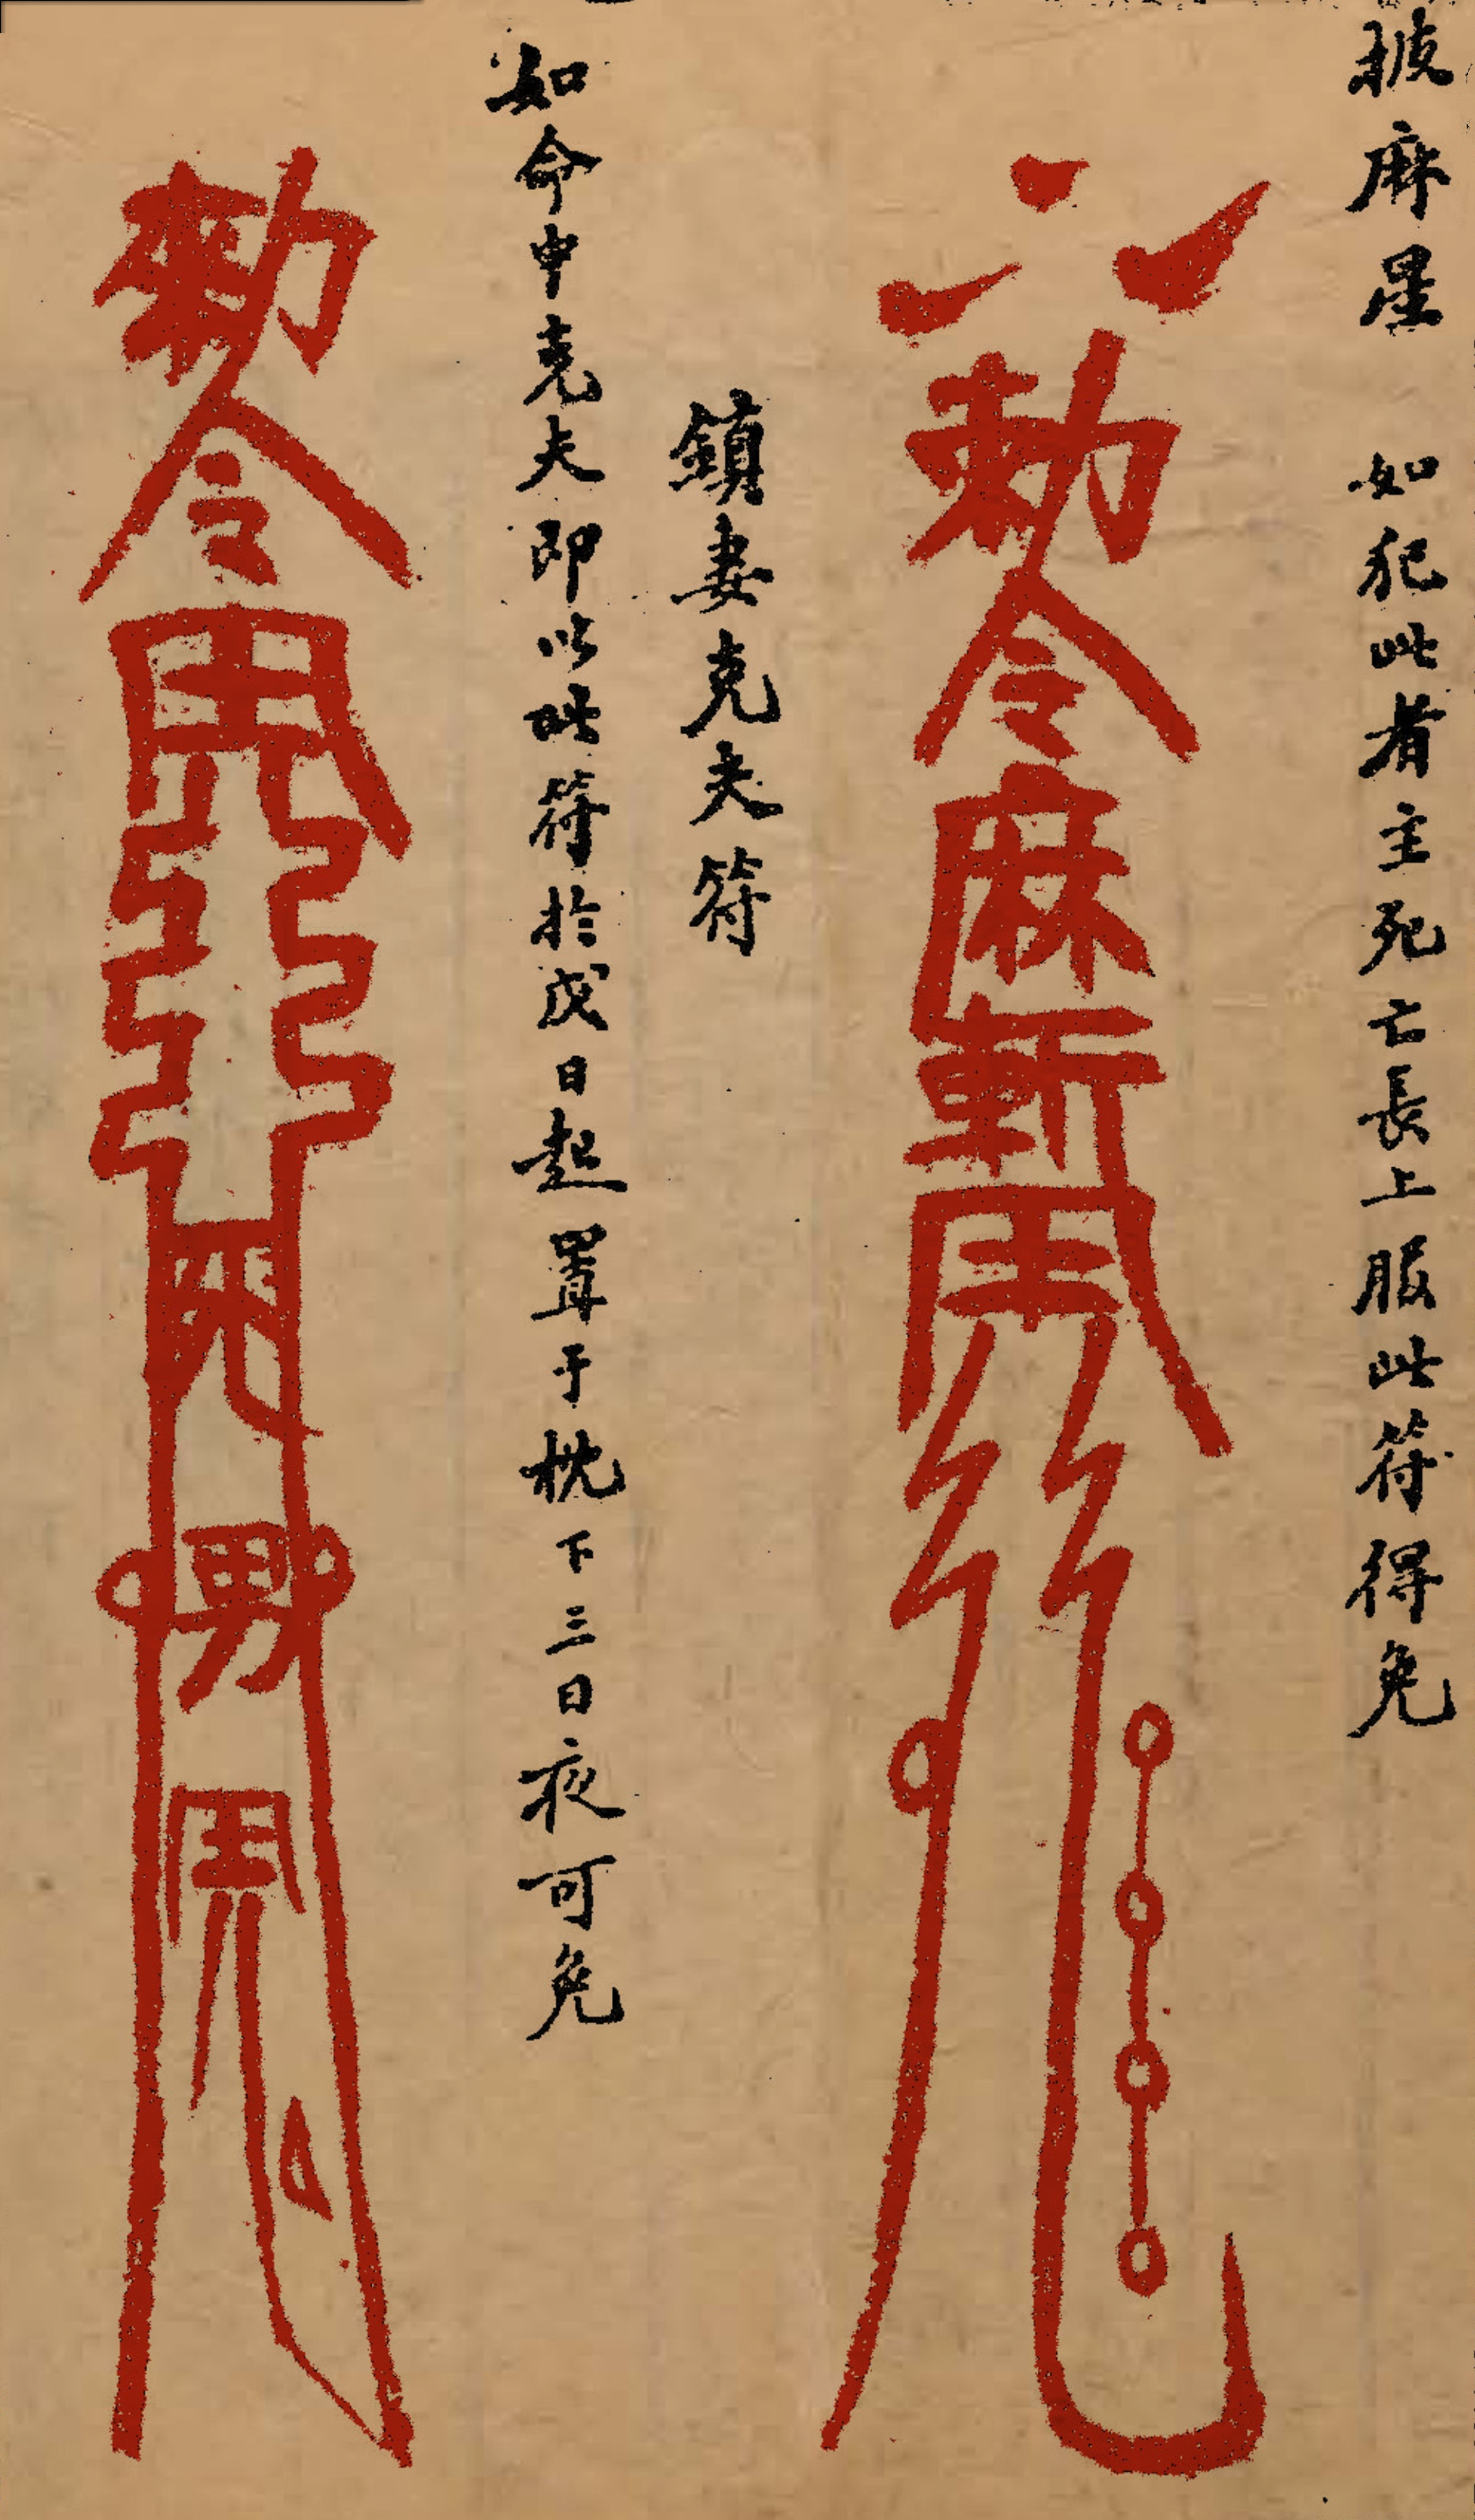 披麻星 如犯此者主死亡長上服此符得免
勅令麻斬
鎮妻克夫符
如命中克夫即以此符於戌日起置于枕下三日夜可免
勅令
男